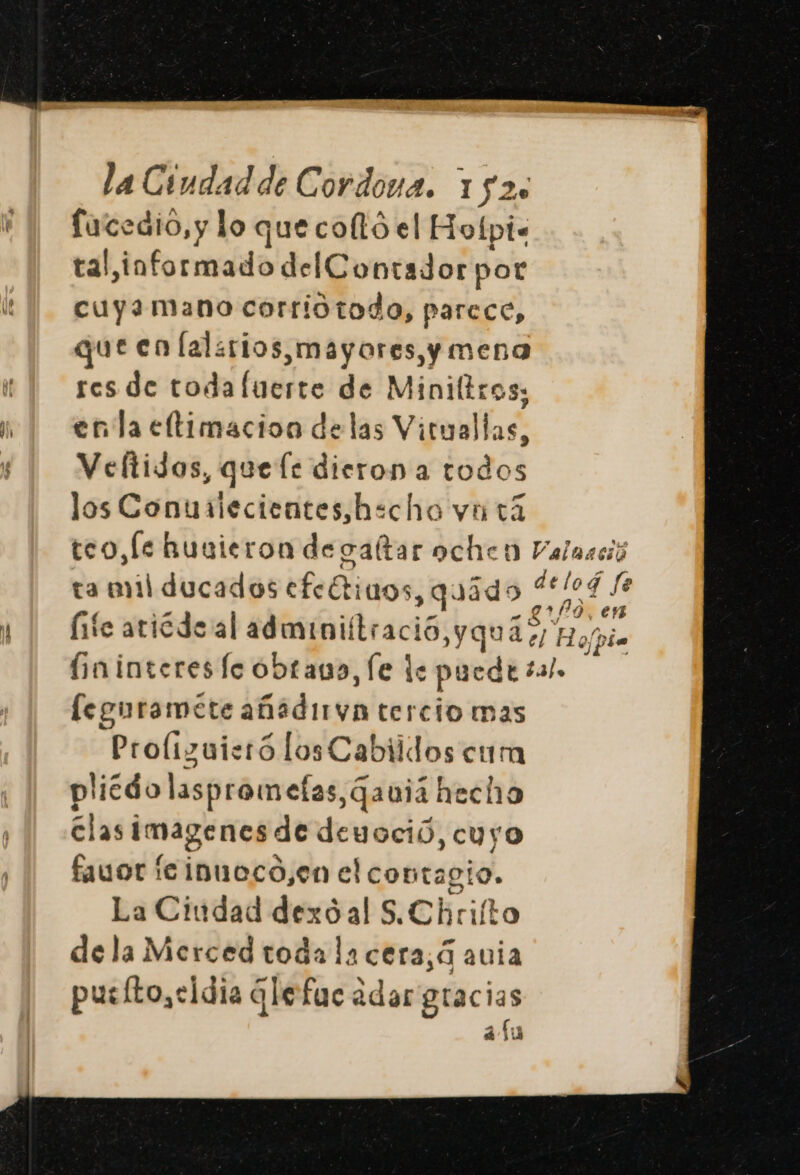 la Ciudad de Cordoua. 152.
ſucedió,y lo que coſtò el Hoſpi-
tal,informado del Contador por
cuya mano corriò todo, parece,
que en ſalarios,mayores,y meno
res de toda ſuerte de Miniſtros;
en la eſtimacion de las Vituallas,
Veſtidos, que ſe dieron a todos
los Conualecientes,hecho vn tã
teo,ſe huuieron de gaſtar ochen
ta mil ducados efectiuos, quãdo
ſiſe atiẽde al adminiſtraciõ,y quã
ſin interes ſe obraua, ſe le puede
ſeguramẽte añadir vn tercio mas
Proſiguierõ los Cabildos cum
pliẽdo las promeſas,q̃ auiã hecho
ẽ las imagenes de deuociõ, cuyo
fauor ſe inuocò,en el contagio.
La Ciudad dexò al S. Chriſto
de la Merced toda la cera,q̃ auia
pueſto,el dia q̃ le fue à dar gracias
a ſu
Valuaciõ
de lo q̃ ſe
gaſtò, en
el Hoſpi-
tal.